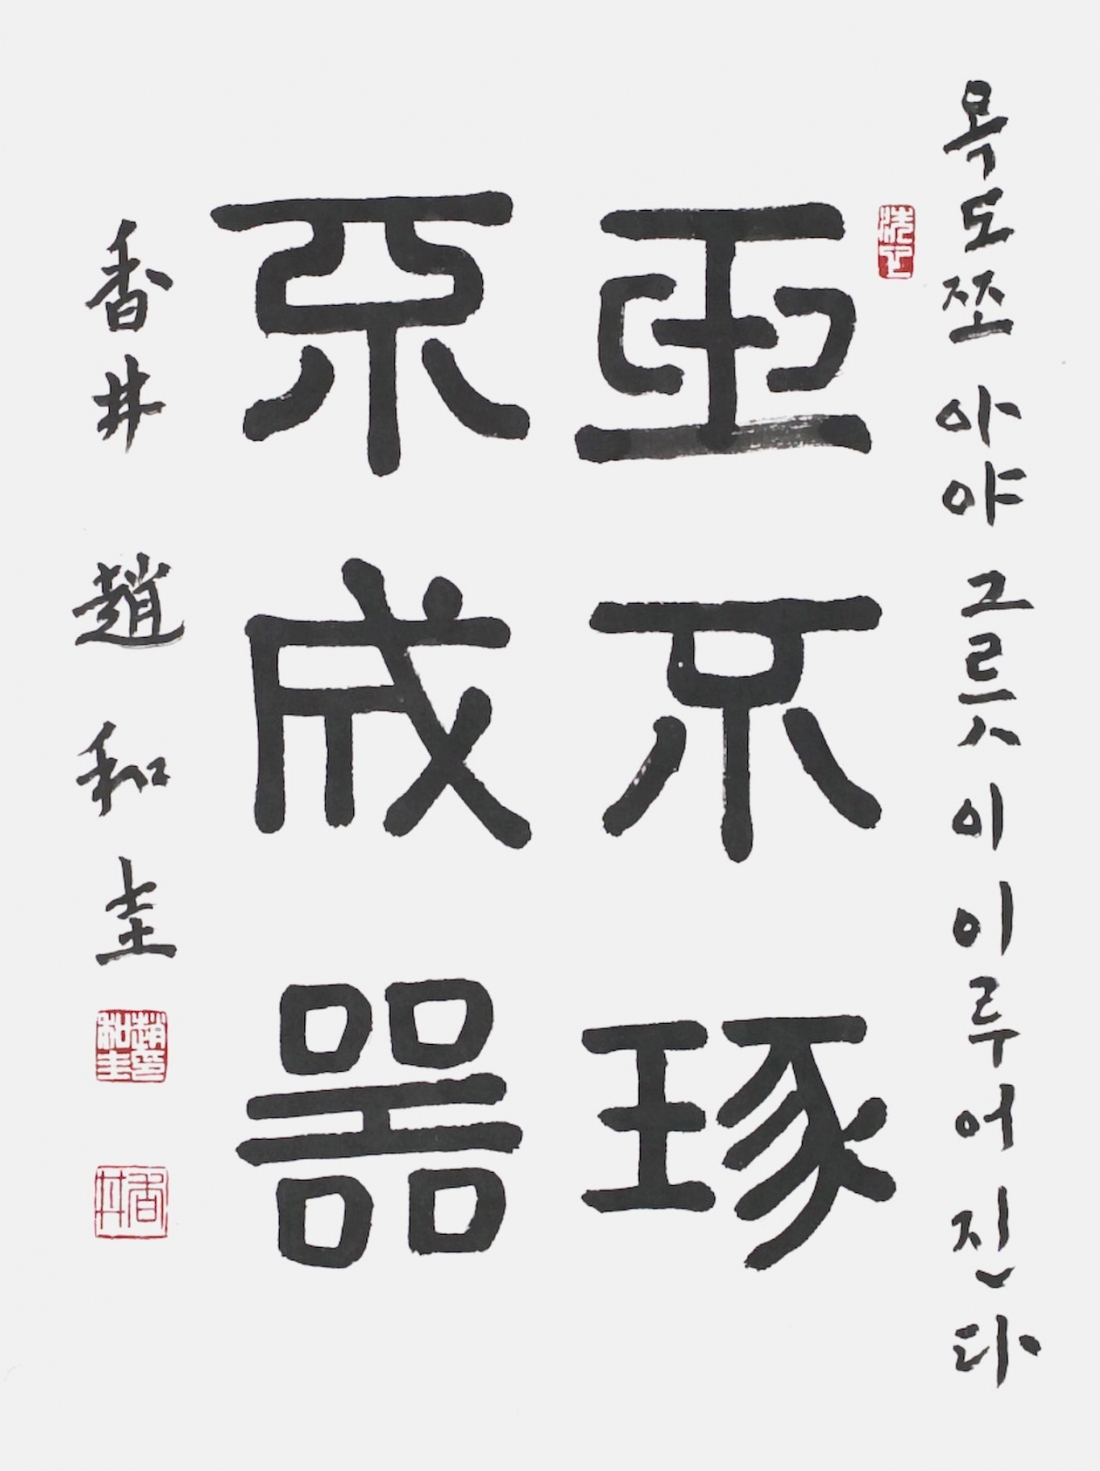 옥도 쪼아야 그릇이 이루어진다
玉不琢
不成器
香井 趙和圭
趙印和圭
香井